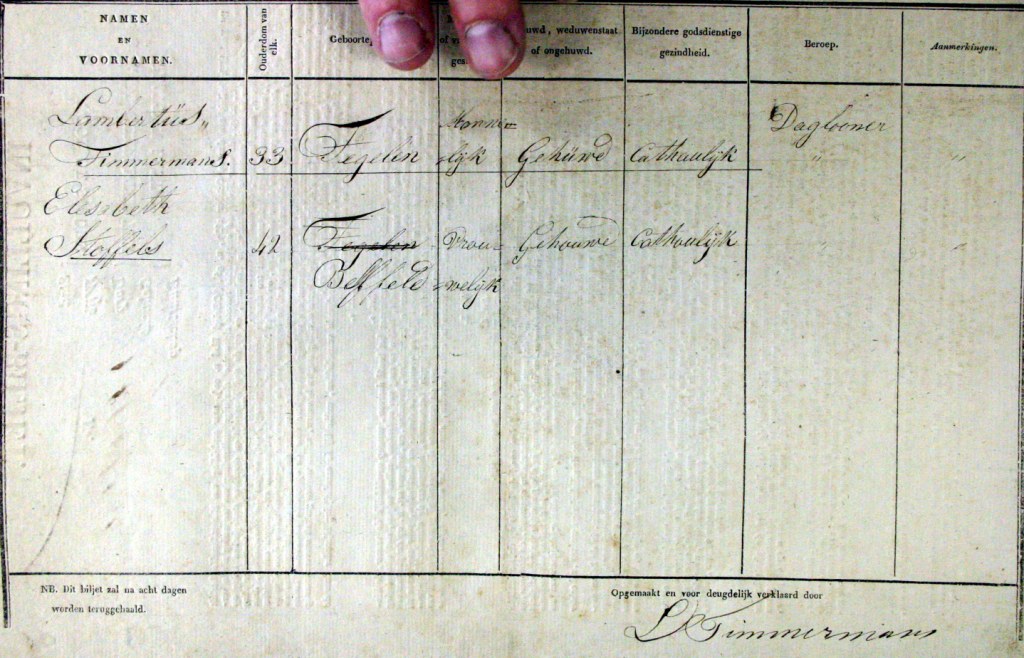 NAMEN
EN
VOORNAMEN.
Ouderdom van
elk.
Geboorte
uwd, weduwenstaat
of ongehuwd.
Bijzondere godsdienstige
gezindheid.
Beroep.
Aanmerkingen.
Lambertüs„ Manne= Daglooner
Timmermans. 33 Tegelen =lijk Gehüwd Cathoulijk „ „
Elesabeth
Stoffels 42 Tegelen Vrou= Gehouwd Cathoulijk
Belffeld =welijk
NB. Dit biljet zal na acht dagen
worden teruggehaald.
Opgemaakt en voor deugdelijk verklaard door
L Timmermans